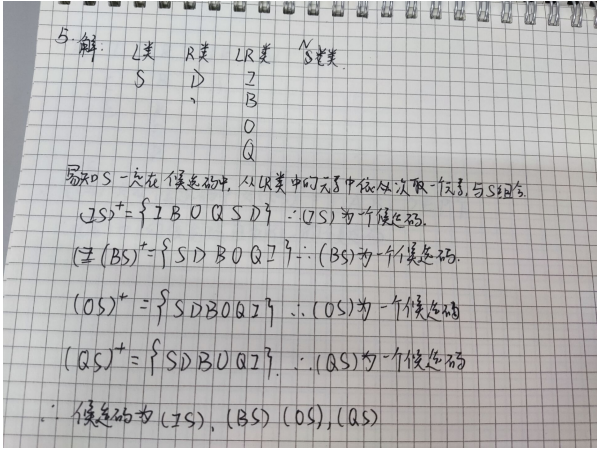 5. 解: L类 R类 LR类 N类
S D I
B
O
Q
易知S一定在候选码中, 从LR类中的元素中依次取一个元素, 与S组合.
(IS)⁺={IBOQSD} ∴(IS)为一个候选码.
(BS)⁺={SDBOQI} ∴(BS)为一个候选码.
(OS)⁺={SDBOQI} ∴(OS)为一个候选码
(QS)⁺={SDBOQI}. ∴(QS)为一个候选码
∴候选码为(IS), (BS) (OS), (QS)